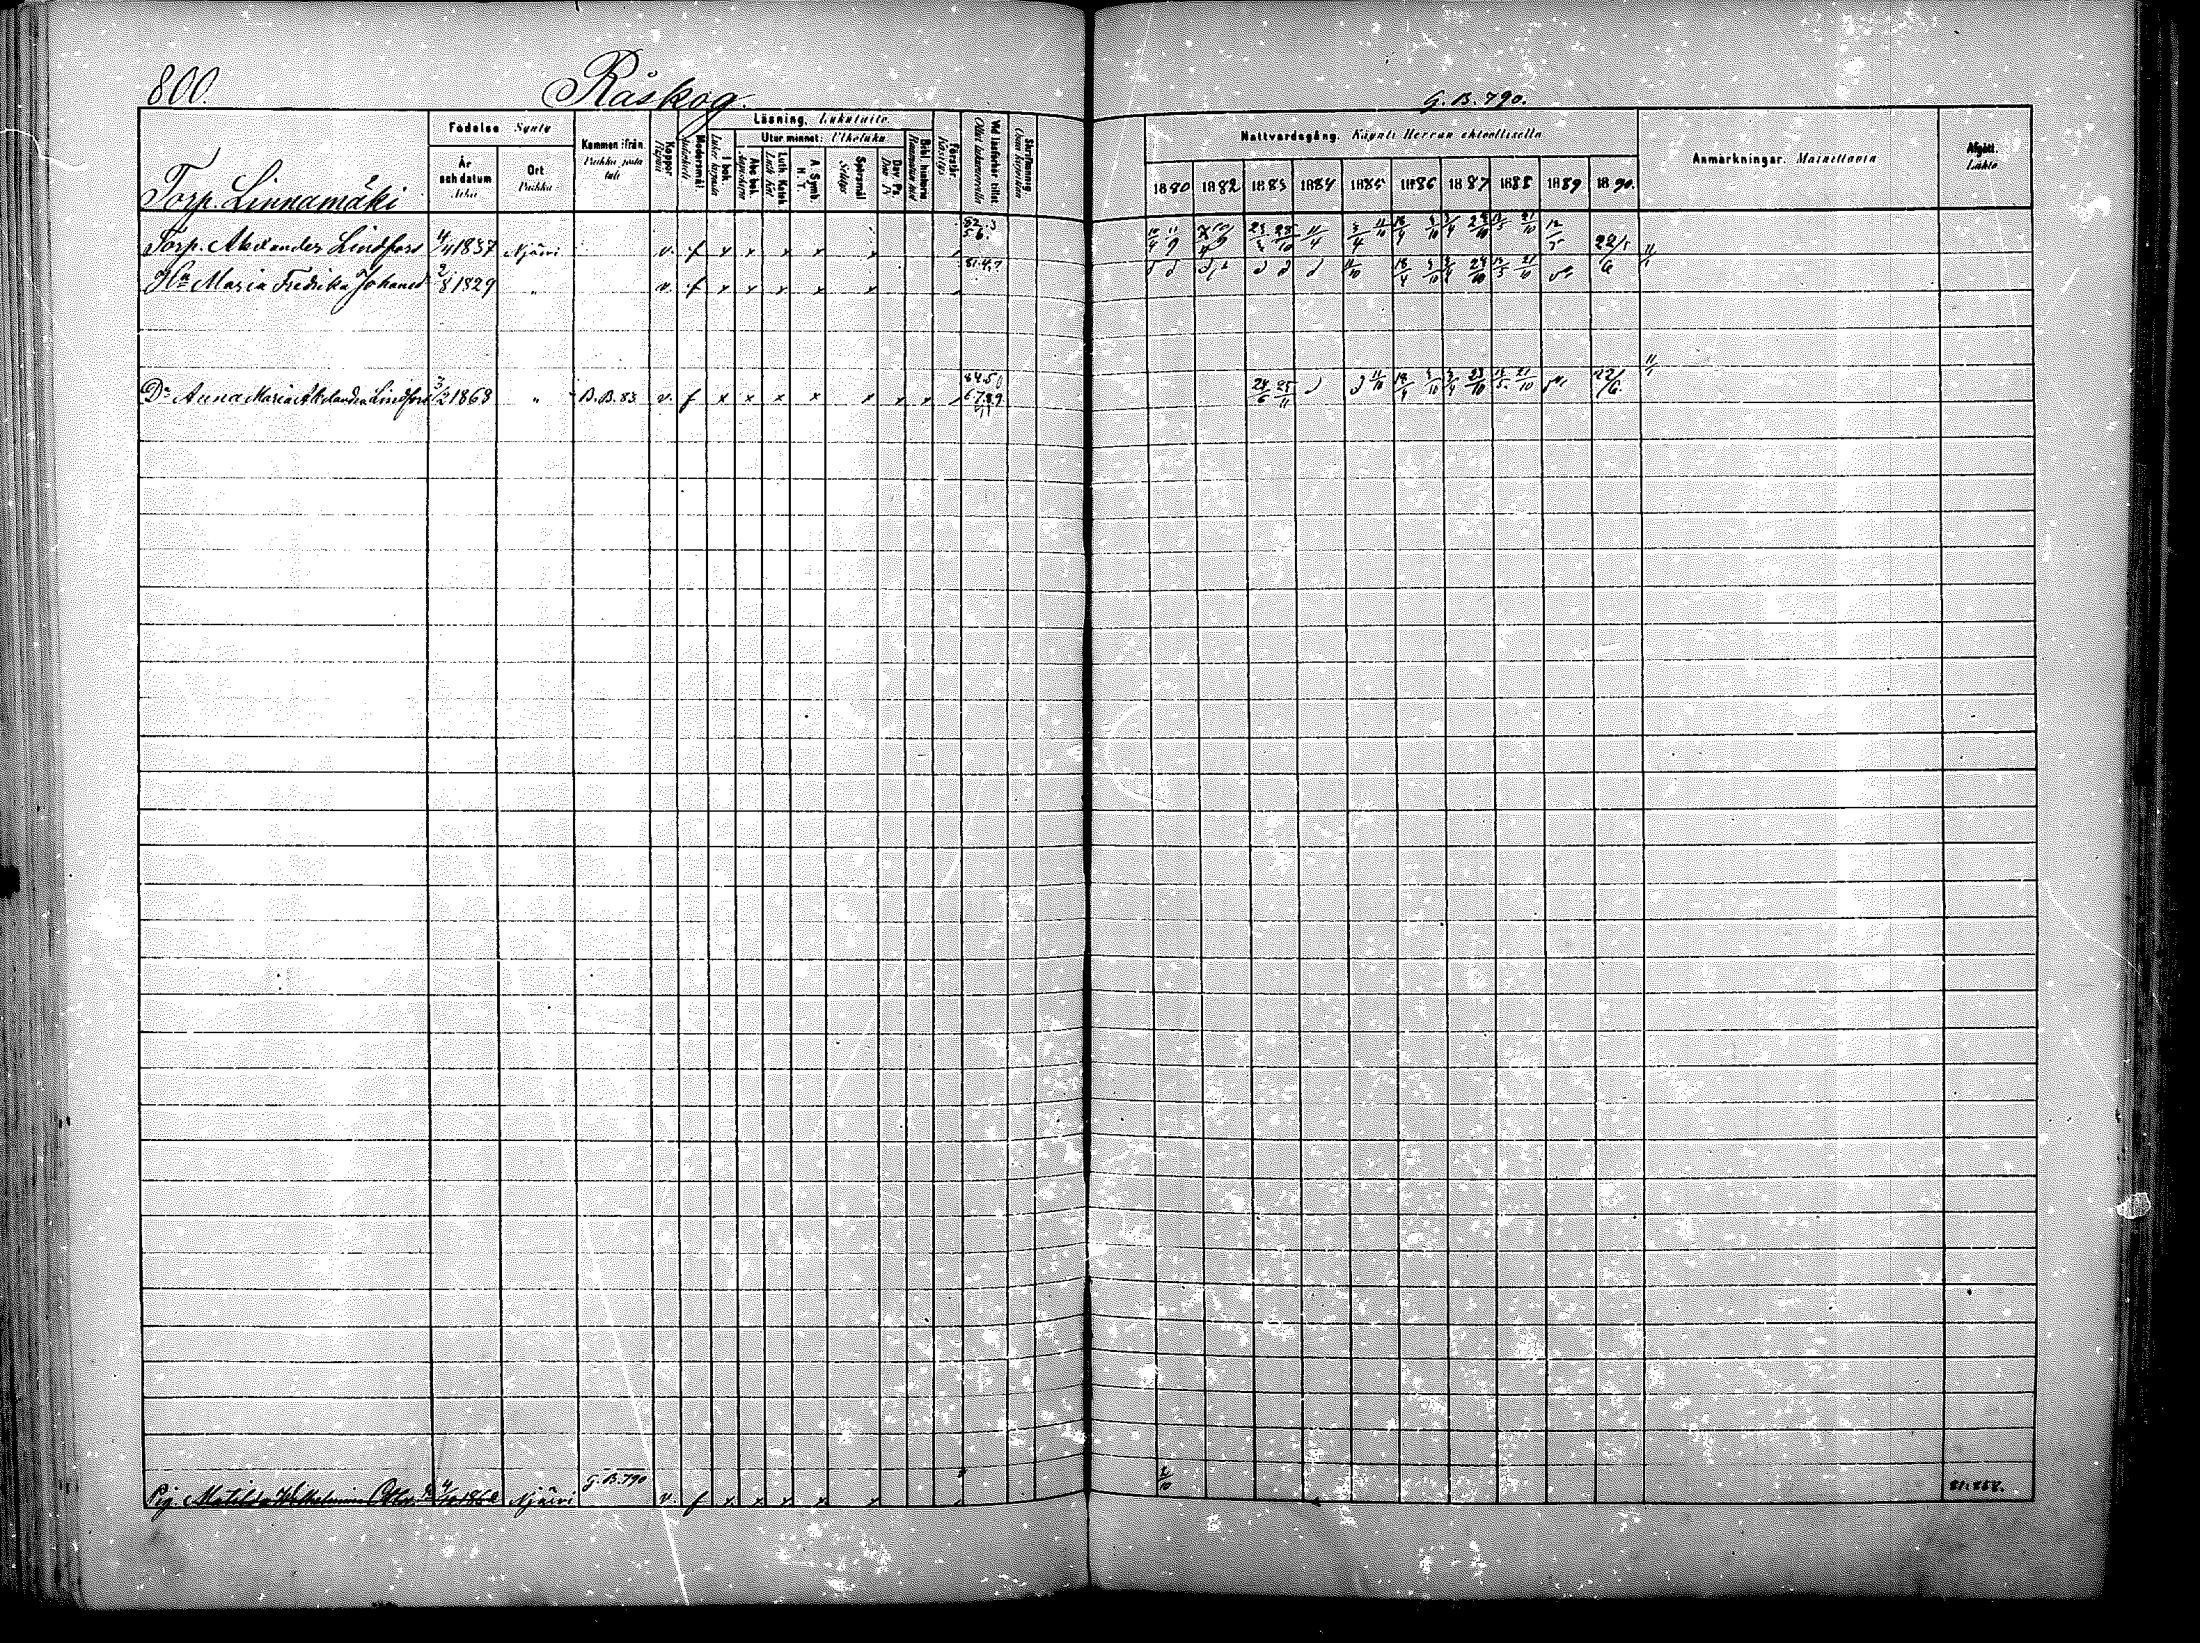 800.
Råskog.
G. B. 790.
Torp. Linnamäki
Födelse Synty
År och datum Aika
Ort Paikka
Kommen ifrån Paikka josta tuli
Koppor Rupuli
Läsning, Lukutaito
Modersmål Äidinkieli
I bok
Utur minnet: Ulkoluku
Abc bok.
Luth. Katek.
A. Symb. H. T.
Spörsmål Selitys
Dav. Ps. Dav. Ps.
Bibl. historia
Förstår. Käsitys
Vid läsförhör tillst.
Skriftning
Nattvardsgång. Käynti Herran ehtoollisella
1880 1882 1883 1884 1885 1886 1887 1888 1889 1890.
Anmärkningar. Muistettavia
Afgått. Lähtö
Torp. Alexander Lindfors 4/11 1837 Njurvi v. f x x x x x
82. 3 5. 6. 10/4 11/9 11/4 3/4 11/10 18/4 3/10 3/4 23/10 13/5 21/10 12/5 22/5 11/1
Hu Maria Fredrika Johansd 2/8 1829 " v. f x x x x x
81. 4. 7 11/10 18/4 3/10 3/4 23/10 13/5 21/10 6
Dr Anna Maria Alexandra Lindfors 3/2 1868 " B. B. 83 v. f x x x x x x x
84. 5 6. 7. 8. 9 11 24/6 25/11 11/10 18/4 3/10 3/4 23/10 13/5 21/10 22/6 11/1
G. B. 790
Pig. Matilda Wilhelmina 4/10 1862 v. f x x x x x
2/10
81. 858.